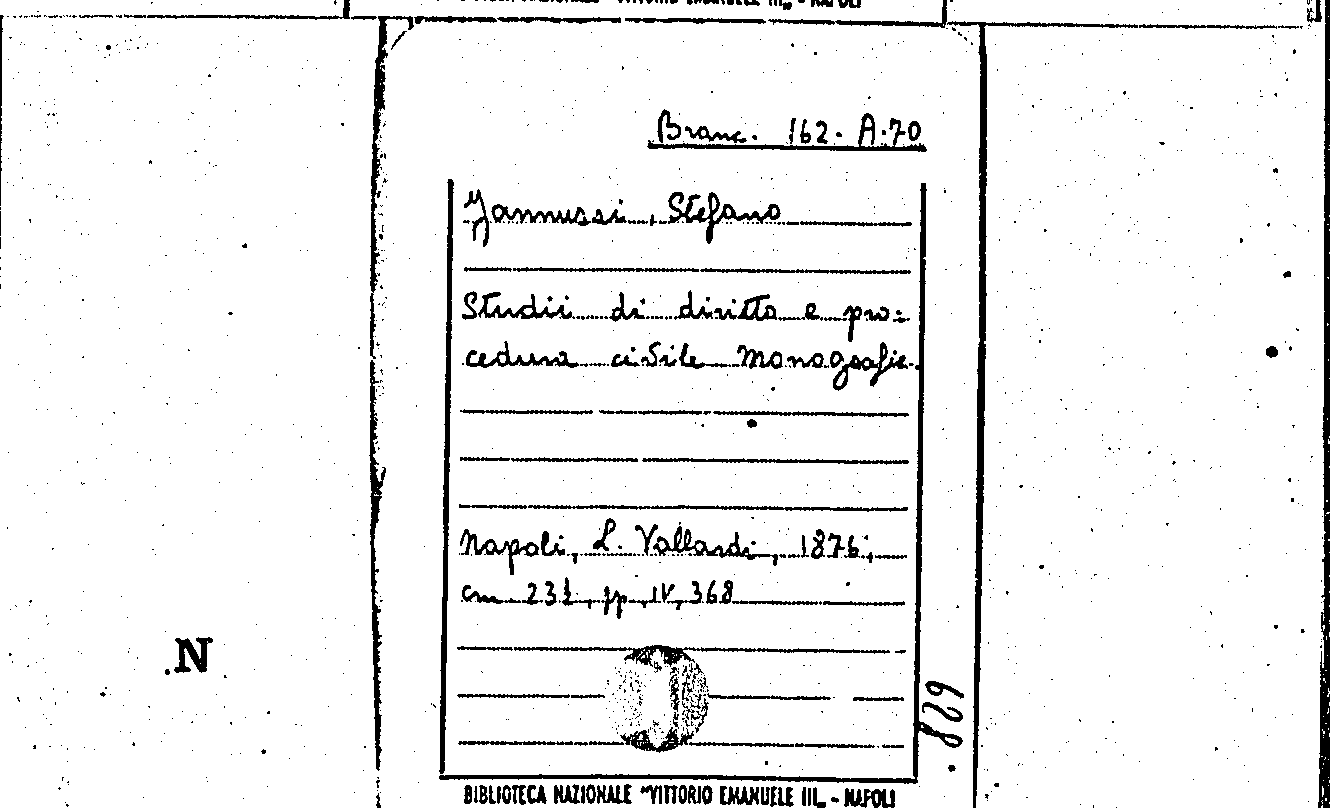 Branc. 162. A. 70
Jannussi, Stefano
Studii di diritto e pro=
cedura civile monografie.
Napoli, L. Vallardi, 1876;
cm. 23½, pp. IV, 368
N
629
BIBLIOTECA NAZIONALE "VITTORIO EMANUELE III„ - NAPOLI